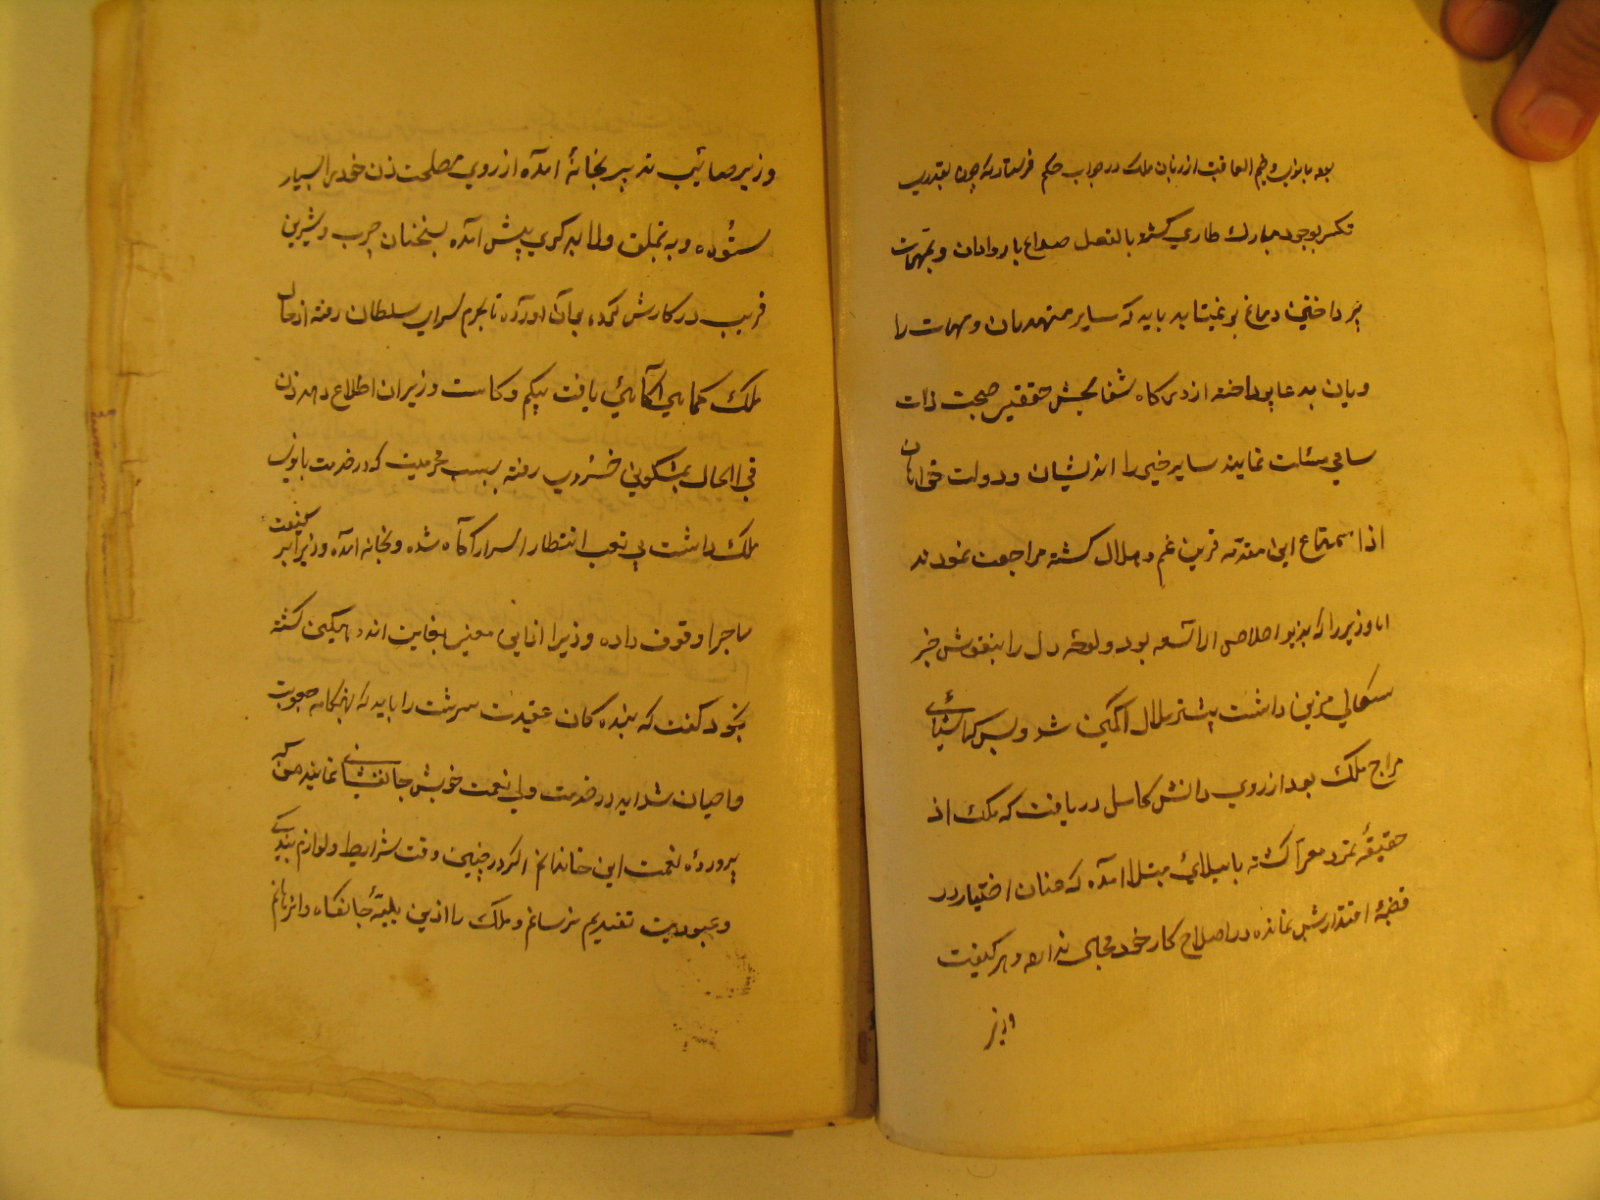 بعد بانوی وخیم العاقبت از زبان ملک در جواب حکم فرستاد که چون بتقریب
تکسر بوجود مبارک طاری گشته بالفعل صداع بار وادان و بمهمات
پرداختن دماغ بر نمیتابد باید که سایر متعهدان و مهمات را
بدعا پرداخته از درگاه شفابخش حقیقی صحت ذات
سامی مسئلت نمایند سایر خیر اندیشان و دولت خواهان
از استماع این مقدمه قرین غم و ملال گشته مراجعت نمودند
اما وزیر را که بزیور اخلاص اراسته بود و لوحه دل را بنقوش خیر
سگالی مزین داشت بیشتر ملال اگین شد و بس که شناسای
مزاج ملک بود از روی دانش کامل دریافت که ملک از
حقیقهٔ تمرد معرا گشته بابتلای مبتلا امده که عنان اختیار در
قبضهٔ اقتدارش نمانده در اصلاح کار خود مجالی ندارد و بر کیفیت
وزیر
وزیر صائب تدبیر بخانهٔ امده از روی مصلحت زن خود را بسیار
ستوده و به تملق ولابه گری پیش امده بسخنان چرب و شیرین
فریب در کارش کرده بران اورد که تا بحرم سرای سلطان رفته از حال
ملک کماهی اگاهی یافته بیکم وکاست وزیر را اطلاع دهد زن
فی الحال بمشکوی خسروی رفته بسبب محرمیت که در خدمت بانوی
ملک داشت بی تعب انتظار اسرار آگاه شده و بخانه امده وزیر را بر کیفیت
ماجرا وقوف داده وزیر از این معنی بغایت اندوهگین گشته
بخود گفت که بنده گان عقیدت سرشت را باید که بهنگامه صعوبت
واحیان شداید در خدمت ولی نعمت خویش جانفشانی نمایند من که
پرورده نعمت این خاندانم اگر در چنین وقت شرایط و لوازم بندگی
و عبودیت تقدیم نرسانم و ملک را ازین بلیهٔ جانکاه وا نرهانم